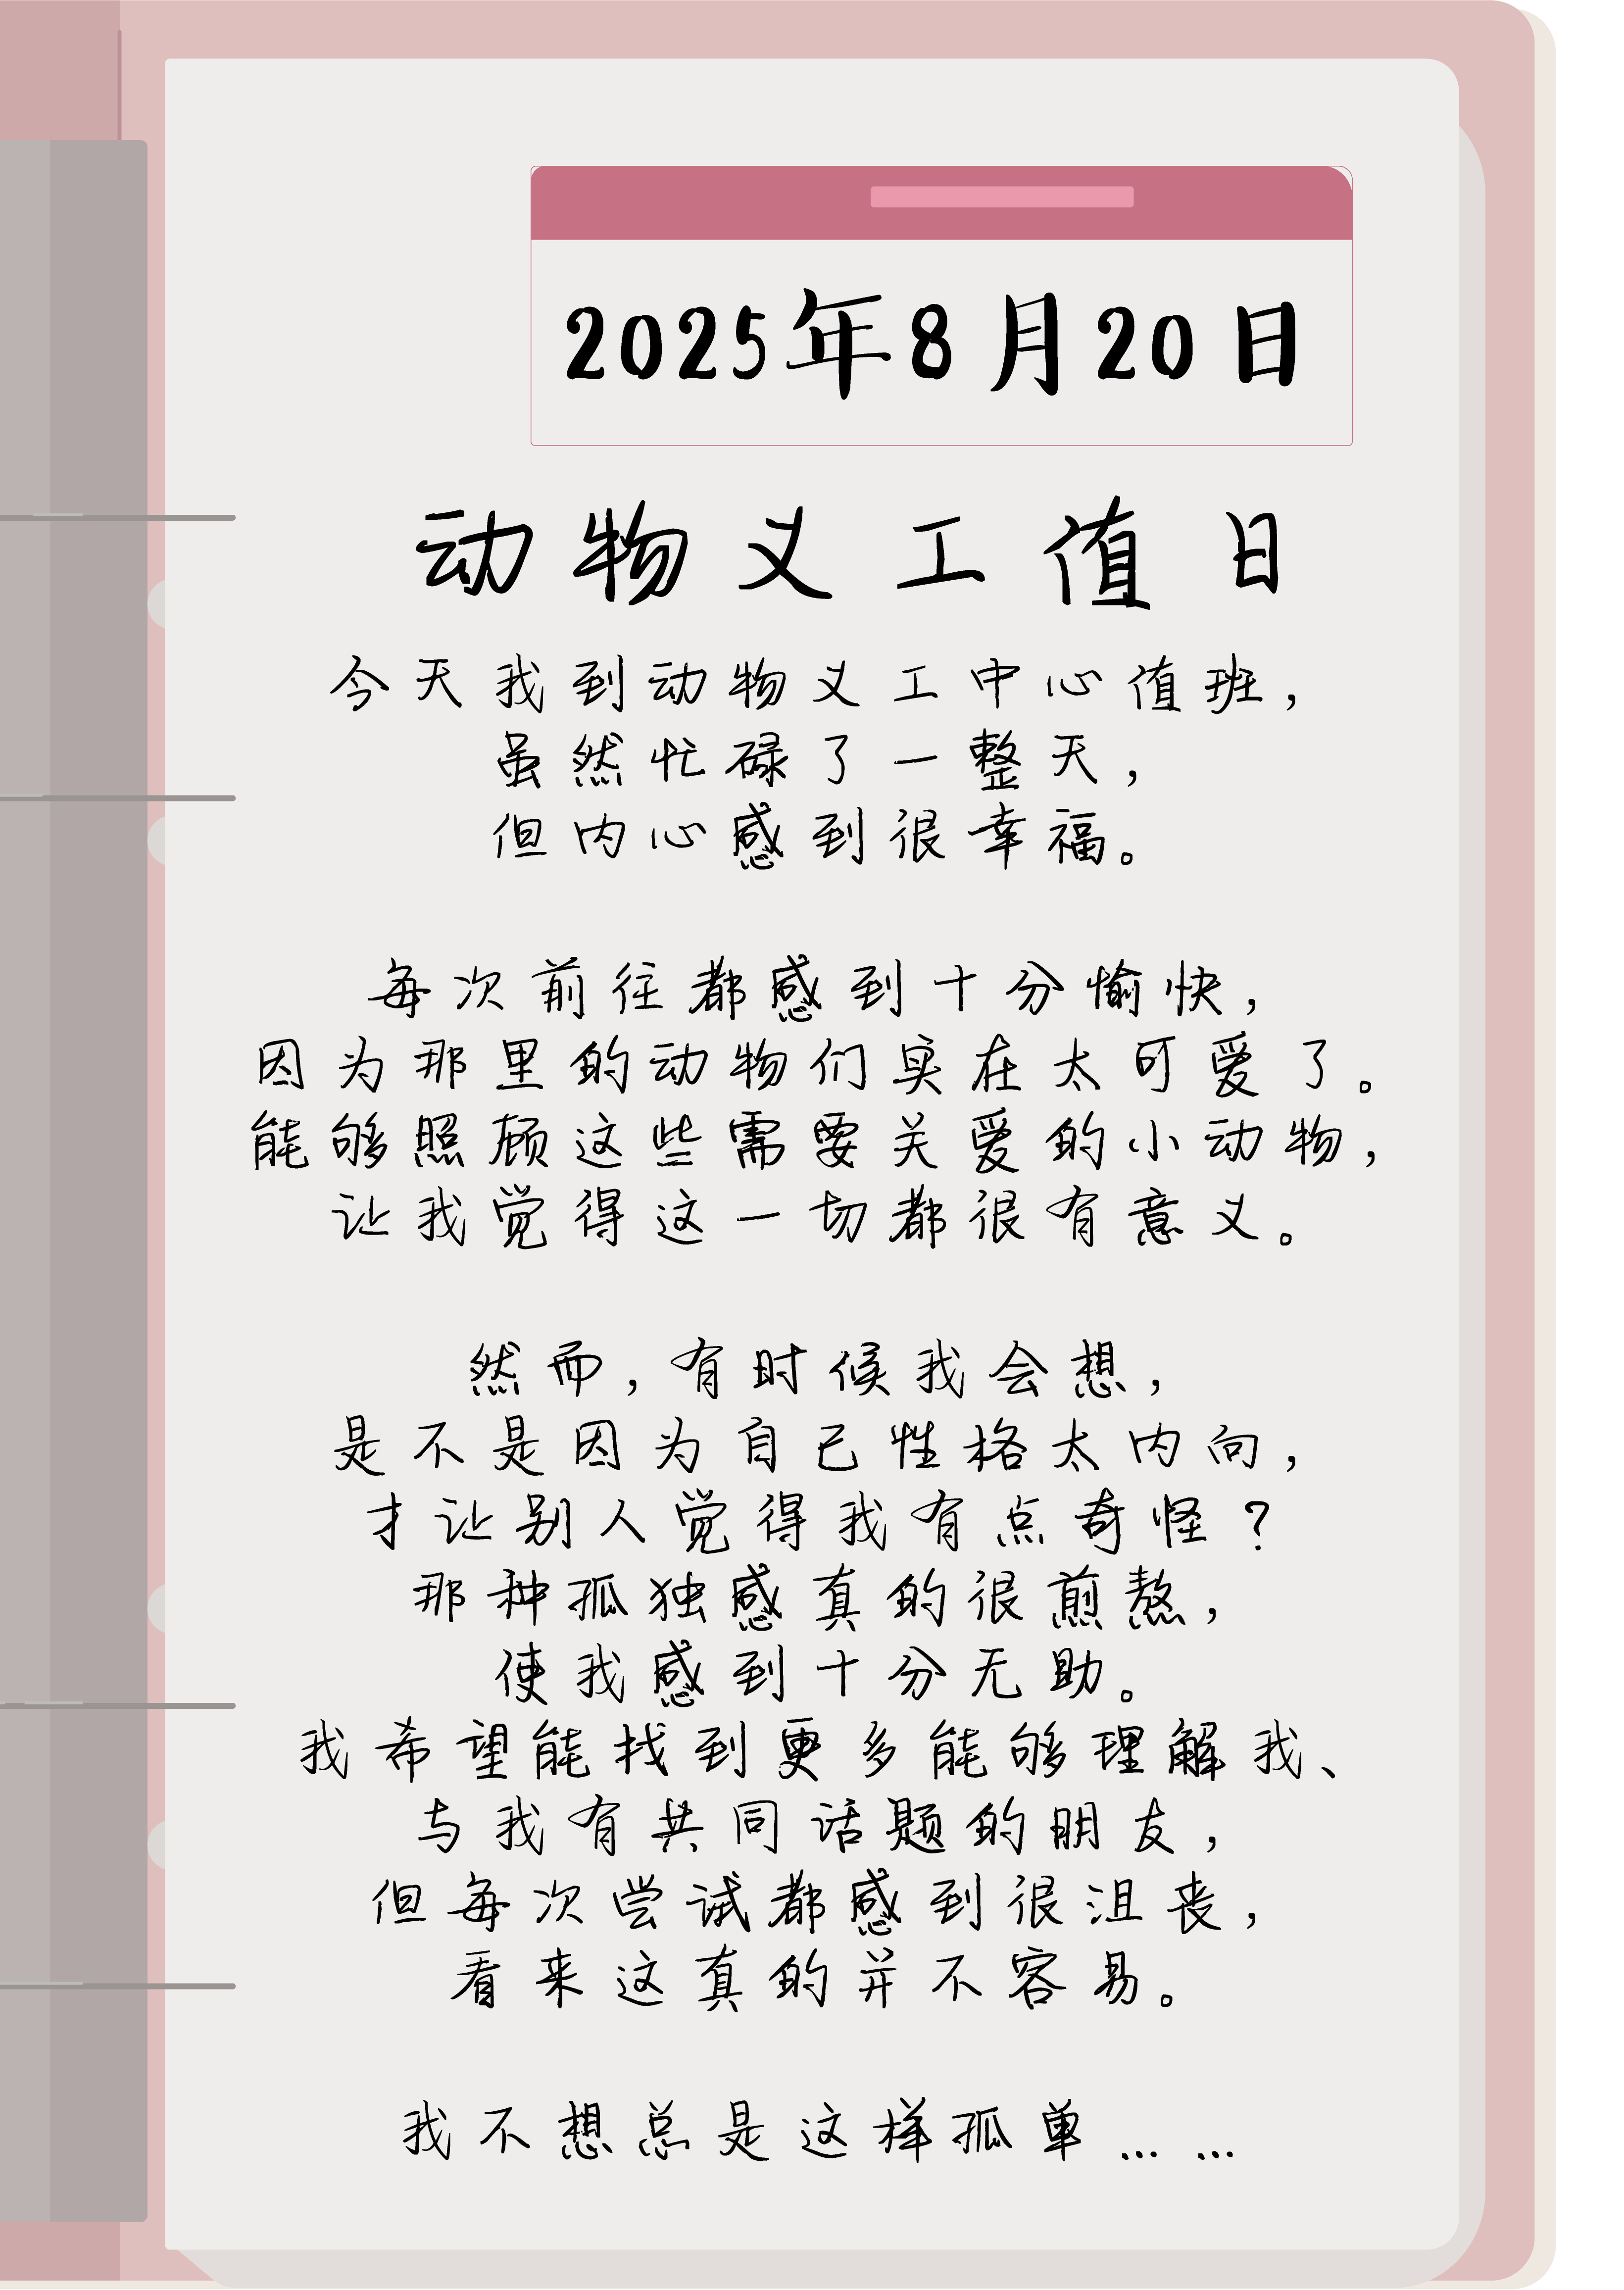 2025年8月20日
动物义工值日
今天我到动物义工中心值班，
虽然忙碌了一整天，
但内心感到很幸福。
每次前往都感到十分愉快，
因为那里的动物们实在太可爱了。
能够照顾这些需要关爱的小动物，
让我觉得这一切都很有意义。
然而，有时候我会想，
是不是因为自己性格太内向，
才让别人觉得我有点奇怪？
那种孤独感真的很煎熬，
使我感到十分无助。
我希望能找到更多能够理解我、
与我有共同话题的朋友，
但每次尝试都感到很沮丧，
看来这真的并不容易。
我不想总是这样孤单……